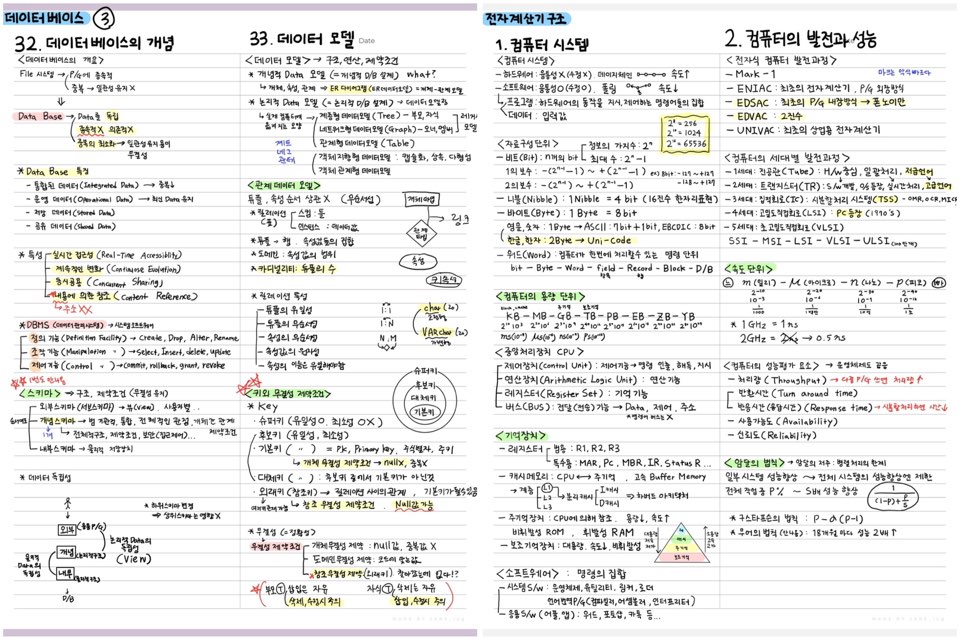 데이터베이스 ③
32. 데이터베이스의 개념
<데이터베이스의 개요>
File 시스템 → P/G에 종속적
중복 → 일관성 유지 X
⇓
Data Base → Data로 독립
종속적X 의존적X
중복의 최소화 → 일관성 유지 용이
무결성
* Data Base 특징
- 통합된 데이터 (Integrated Data) → 중복↓
- 운영 데이터 (Operational Data) → 최신 Data 유지
- 저장 데이터 (Stored Data)
- 공유 데이터 (Shared Data)
* 특성
실시간 접근성 (Real-Time Accessiblity)
계속적인 변화 (Continuose Evolution)
동시공용 (Concurrent Sharing)
내용에 의한 참조 (Content Reference)
→ 주소 XX
* DBMS (데이터관리시스템) → 시스템소프트웨어
정의 기능 (Definition Facility) → Create, Drop, Alter, Rename
조작 기능 (Manipulation 〃) → Select, Insert, delete, update
제어 기능 (Control 〃) → commit, rollback, grant, revoke
<스키마> → 구조, 제약조건 (무결성 유지)
외부스키마 (서브스키마) → 뷰(view), 사용자별..
개념스키마 → 범 기관적, 통합, 전체적인 관점, 개체간 관계
→ 전체적구조, 제약조건, 보안
내부스키마 → 물리적 저장장치
* 데이터 독립성
외부
개념
내부
D/B
논리적 Data의 독립성
(View)
물리적 Data의 독립성
33. 데이터 모델
Date
<데이터 모델> → 구조, 연산, 제약조건
* 개념적 Data 모델 (= 개념적 D/B 설계) what?
↳ 개체, 속성, 관계 ⇒ ER 다이어그램 (ER데이터모델) = 개체-관계 모델
* 논리적 Data 모델 (= 논리적 D/B 설계) → 데이터 모델링
계층형 데이터모델 (Tree) - 부모, 자식
네트워크형 데이터모델 (Graph) - 오너, 멤버
관계형 데이터 모델 (Table)
객체지향형 데이터 모델 : 캡슐화, 상속, 다형성
객체 관계형 데이터 모델
<관계 데이터 모델>
튜플, 속성 순서 상관 X (무순서성)
* 릴레이션 (표)
스킴 : 틀
인스턴스 : 데이터값
* 튜플 → 행, 속성값들의 집합
* 도메인 : 속성값의 범위
* 카디널리티 : 튜플의 수
개체타입
관계타입
속성
링크
* 릴레이션 특성
튜플의 유일성
튜플의 무순서성
속성의 무순서성
속성값의 원자성
1:1
1:N
N,M
char (20)
고정형
VARchar (20)
가변형
슈퍼키
후보키
대체키
기본키
<키와 무결성 제약조건>
* Key
- 슈퍼키 (유일성 O, 최소성 OX)
- 후보키 (유일성, 최소성)
- 기본키 ( 〃 ) = PK, Primary key, 주식별자, 주키
↳ 개체 무결성 제약조건 → null X, 중복 X
- 대체키 ( 〃 ) : 후보키 중에서 기본키가 아닌것
- 외래키 (참조키) → 릴레이션 사이의 관계, 기본키가
↳ 참조 무결성 제약조건. Null값 가능
* 무결성 (= 정확성)
무결성 제약조건
개체무결성 제약 : null값, 중복값 X
도메인무결성 제약 :
참조무결성 제약 (외래키) :
부모ⓣ, 삽입은 자유
삭제, 수정시 주의
자식ⓣ, 삭제는 자유
삽입, 수정시 주의
전자계산기 구조
1. 컴퓨터 시스템
<컴퓨터 시스템>
- 하드웨어 : 융통성X (수정X) 속도↑
- 소프트웨어 : 융통성O (수정O), 폴링 속도↓
↳ 프로그램 : 하드웨어의 동작을 지시, 제어하는 명령어들의 집합
데이터 : 입력값
2⁸ = 256
2¹⁰ = 1024
2¹⁶ = 65536
<자료구성 단위>
- 비트(Bit) : n개의 bit
정보의 가지수 : 2ⁿ
최대 수 : 2ⁿ-1
1의 보수 : -(2ⁿ⁻¹-1) ~ +(2ⁿ⁻¹-1) ex) 8bit : -127 ~ +127
2의 보수 : -(2ⁿ⁻¹) ~ +(2ⁿ⁻¹-1) -128 ~ +127
- 니블(Nibble) : 1 Nibble = 4 bit (16진수 한자리표현)
- 바이트(Byte) : 1 Byte = 8 bit
영문, 숫자 : 1Byte → ASCII : 7bit + 1bit, EBCDIC : 8bit
한글, 한자 : 2Byte → Uni-Code
- 워드(Word) : 컴퓨터가 한번에 처리할수 있는 명령 단위
bit - Byte - Word - field - Record - Block - D/B
<컴퓨터의 용량 단위>
KB - MB - GB - TB - PB - EB - ZB - YB
<중앙처리장치 CPU>
제어장치(Control Unit) : 제어기능 → 명령 인출, 해독, 지시
연산장치(Arithmetic Logic Unit) : 연산 기능
레지스터(Register Set) : 기억 기능
버스(BUS) : 전달(전송) 기능 → Data, 제어, 주소
<기억장치>
- 레지스터
범용 : R1, R2, R3
특수용 : MAR, PC, MBR, IR, Status R...
- 캐시메모리 : CPU ↔ 주기억, 고속 Buffer Memory
→ 계층
L1
L2
L3
→ 분리캐시
I캐시
D캐시
⇒ 하버드 아키텍처
- 주기억장치 : CPU에 의해 참조, 용량↓, 속도↑
비휘발성 ROM, 휘발성 RAM
- 보조기억장치 : 대용량, 속도↓, 비휘발성
<소프트웨어> : 명령의 집합
- 시스템 S/W : 운영체제, 유틸리티, 링커, 로더
언어번역 P/G (컴파일러, 어셈블러, 인터프리터)
- 응용 S/W (어플, 앱) : 워드, 포토샵, 카톡 등...
2. 컴퓨터의 발전과 성능
<전자식 컴퓨터 발전과정>
- Mark - 1
- ENIAC : 최초의 전자 계산기, P/G 외장방식
- EDSAC : 최초의 P/G 내장방식 → 폰노이만
- EDVAC : 2진수
- UNIVAC : 최초의 상업용 전자계산기
<컴퓨터의 세대별 발전과정>
- 1세대 : 진공관(Tube) : H/W 중심, 일괄처리, 저급언어
- 2세대 : 트랜지스터(TR) : S/W 개발, OS등장, 실시간처리, 고급언어
- 3세대 : 집적회로(IC) : 시분할처리 시스템(TSS) - OMR, OCR, MICR
- 4세대 : 고밀도집적회로(LSI) : PC등장 (1970's)
- 5세대 : 초고밀도집적회로(VLSI)
SSI - MSI - LSI - VLSI - ULSI
<속도 단위>
m (밀리) - μ (마이크로) - n (나노) - p (피코)
2⁻¹⁰ 2⁻²⁰ 2⁻³⁰ 2⁻⁴⁰
10⁻³ 10⁻⁶ 10⁻⁹ 10⁻¹²
* 1 GHz = 1 ns
2GHz = → 0.5 ns
<컴퓨터의 성능평가 요소> → 운영체제도 공통
- 처리량 (Throughput) → 다중 P/G 쓰면 처리량↑
- 반환시간 (Turn around time)
- 반응시간 (응답시간) (Response time) → 시분할처리하면 시간↓
- 사용가능도 (Availability)
- 신뢰도 (Reliability)
<암달의 법칙> → 암달의 저주 : 병렬처리의 한계
일부 시스템 성능향상 → 전체 시스템의 성능향상엔 제한
전체 작업 중 P% ~ S배 성능 향상
1
(1-P)+P/S
* 구스타프슨의 법칙 : P-α(P-1)
* 무어의 법칙 (반4용) : 18개월마다 성능 2배↑